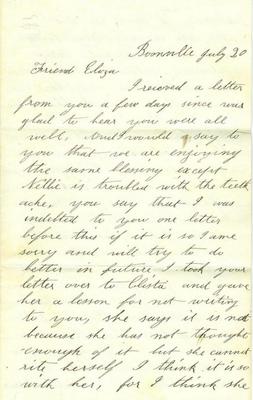 Bonnville July 20
Friend Eliza
I recieved a letter
from you a few days since was
glad to hear you were all
well, And I would say to
you that we are enjoying
the same blessing except
Nettie is troubled with the teeth
ache, you say that I was
indebted to you one letter
before this if it is so I am
sorry and will try to do
better in future I took your
letter over to and gave
her a lesson for not writing
to you, she says it is not
because she has not thought
enough of it but she cannot
rite herself I think it is so
with her, for I think she